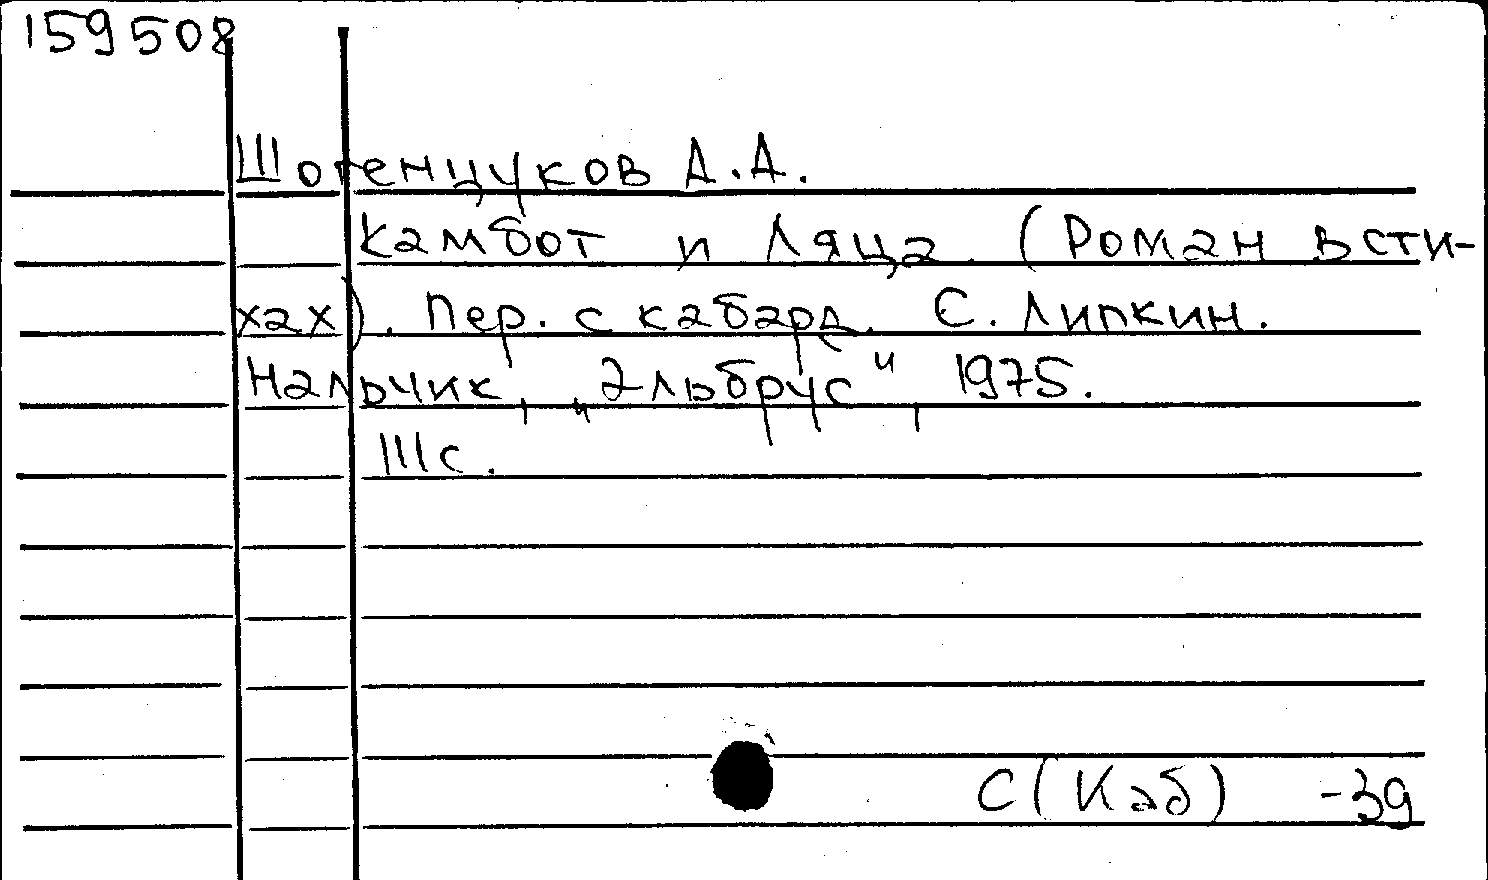 159508
Шогенцуков А.А.
Камбот и Ляца. (Роман в сти-
хах). Пер. с кабард. С. Липкин.
Нальчик, „Эльбрус", 1975.
111с.
С(Каб) -39